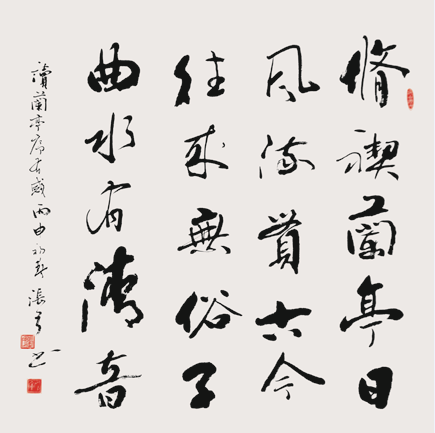 脩禊蘭亭日
風流貫古今
往來無俗子
曲水有清音
讀蘭亭序有感丙申初